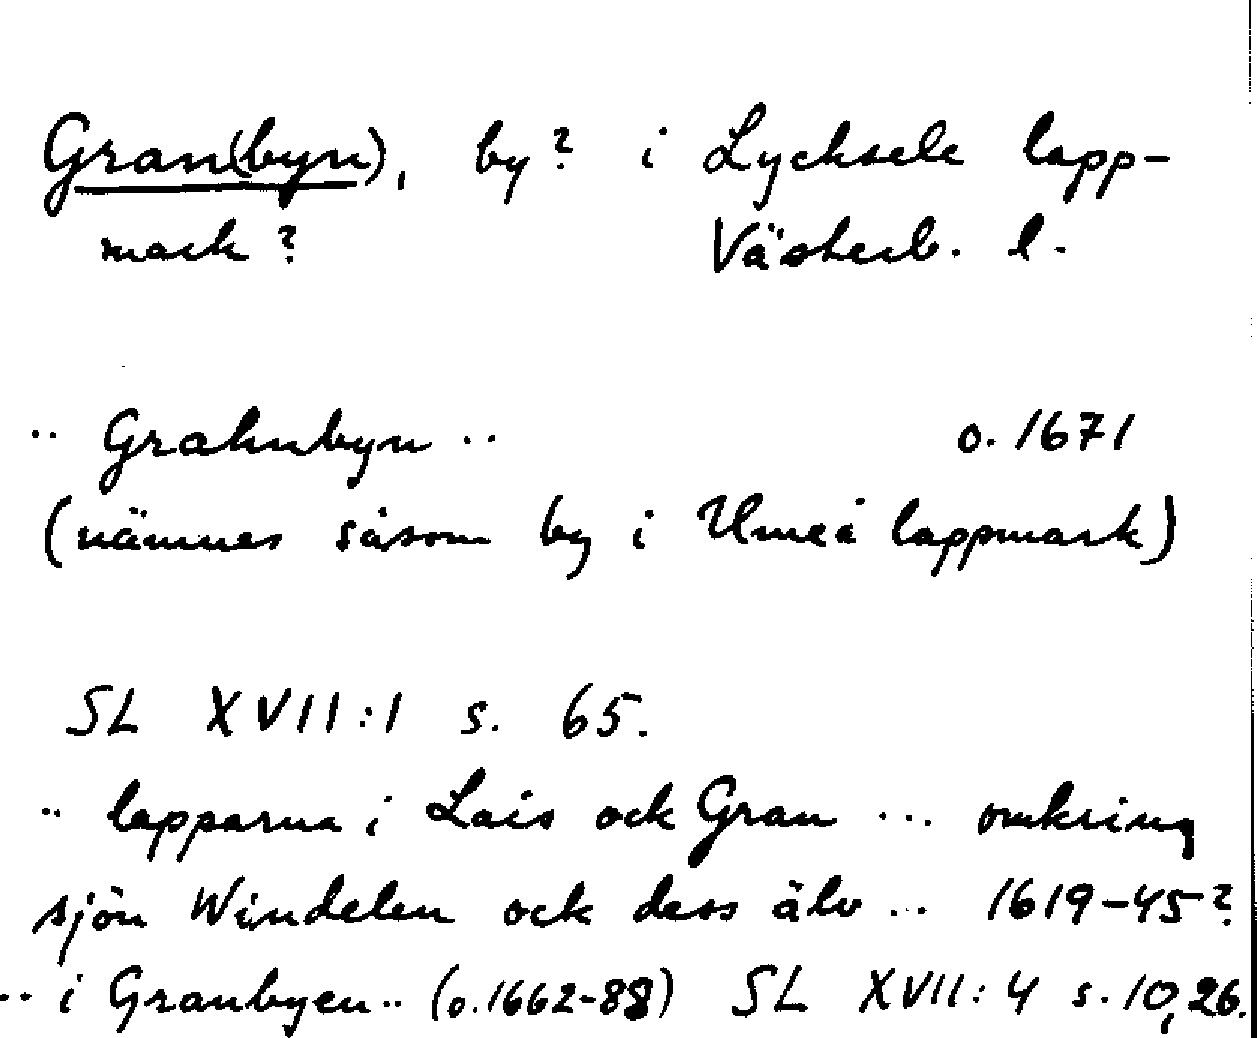 Gran(byn), by? i Lycksele lapp-
mark? Västerb. l.
.. Grahnbyn .. o. 1671
(nämnes såsom by i Umeå lappmark)
SL XVII:1 s. 65.
.. lapparna i Lais ock Gran ... omkring
sjön Windelen ock dess älv ... 1619-45?
.. i Granbyen .. (o. 1662-88) SL XVII:4 s. 10, 26.